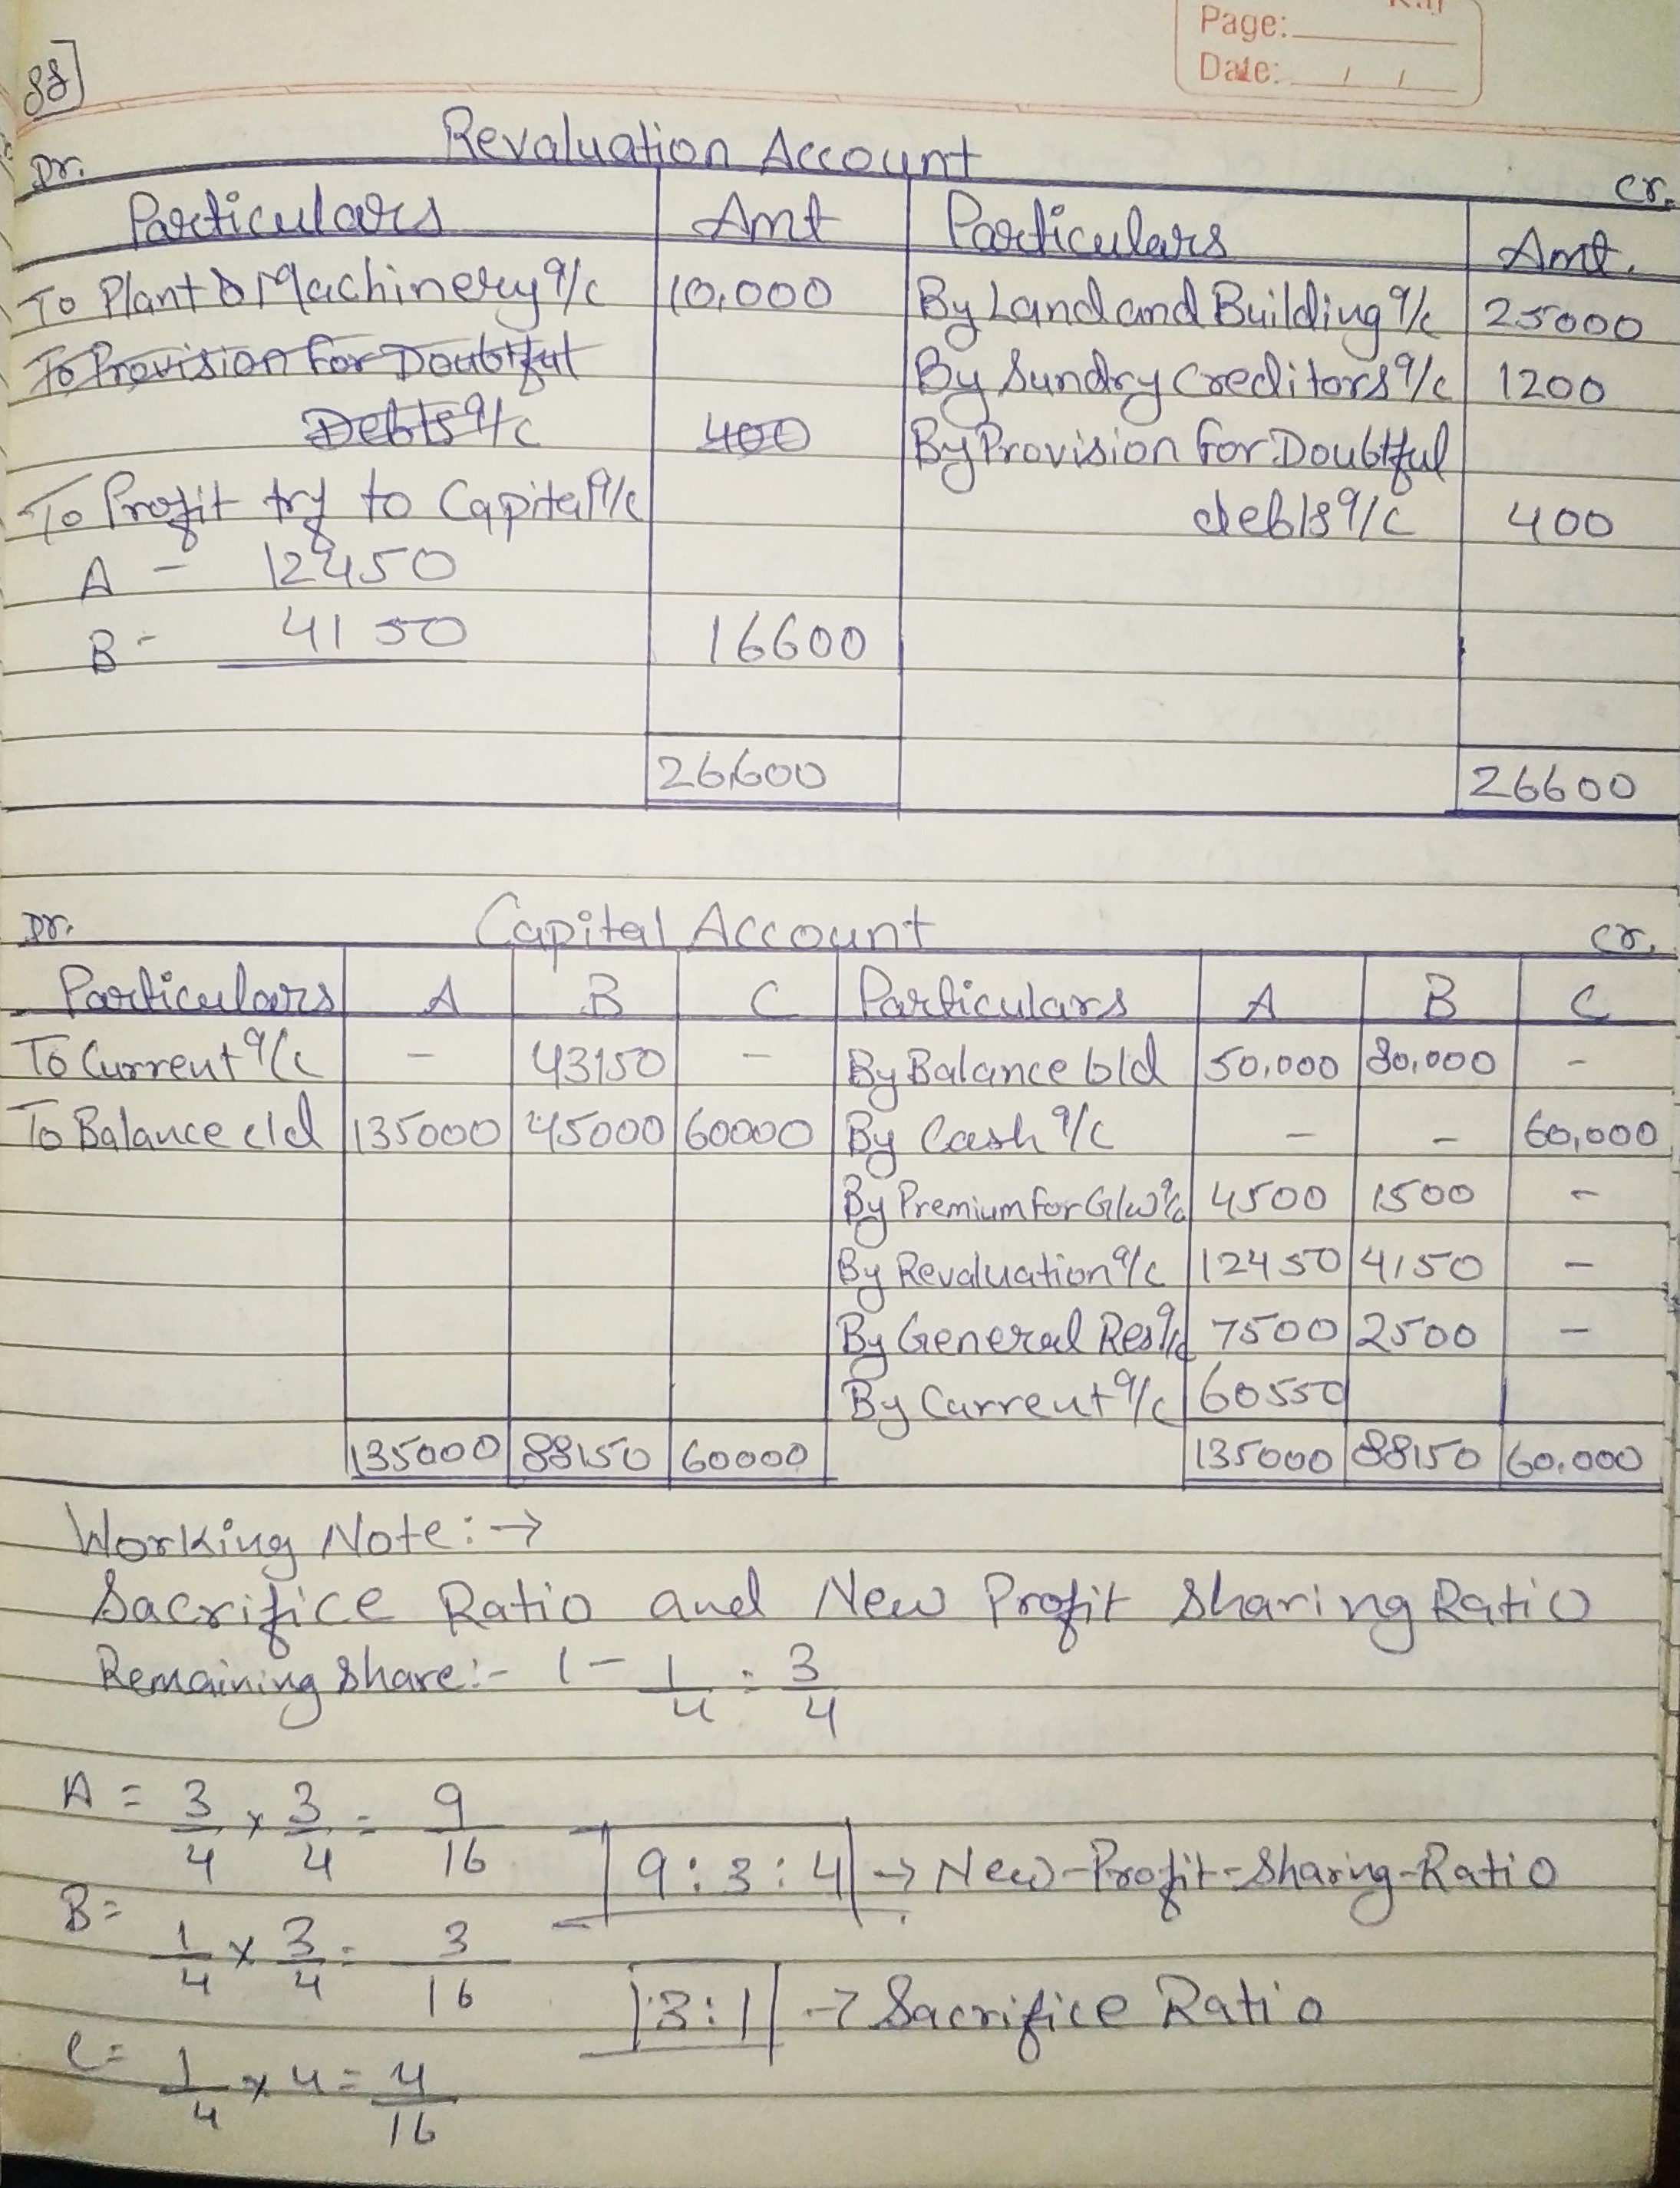 Page:
Date: / /
88]
Revaluation Account
Dr. Cr.
Particulars Amt Particulars Amt.
To Plant & Machinery A/c 10,000 By Land and Building A/c 25000
To Provision for Doubtful By Sundry Creditors A/c 1200
Debts A/c 400 By Provision for Doubtful
To Profit trf to Capital A/c debts A/c 400
A - 12450
B - 4150 16600
26,600 26600
Dr. Capital Account Cr.
Particulars A B C Particulars A B C
To Current A/c - 43150 - By Balance b/d 50,000 80,000 -
To Balance c/d 135000 45000 60000 By Cash A/c - - 60,000
By Premium for G/w A/c 4500 1500 -
By Revaluation A/c 12450 4150 -
By General Res A/c 7500 2500 -
By Current A/c 60550
135000 88150 60000 135000 88150 60,000
Working Note:→
Sacrifice Ratio and New Profit Sharing Ratio
Remaining Share:- 1 - 1/4 = 3/4
A = 3/4 × 3/4 = 9/16
9:3:4 → New-Profit-Sharing-Ratio
B = 1/4 × 3/4 = 3/16
3:1 → Sacrifice Ratio
C = 1/4 × 4 = 4/16